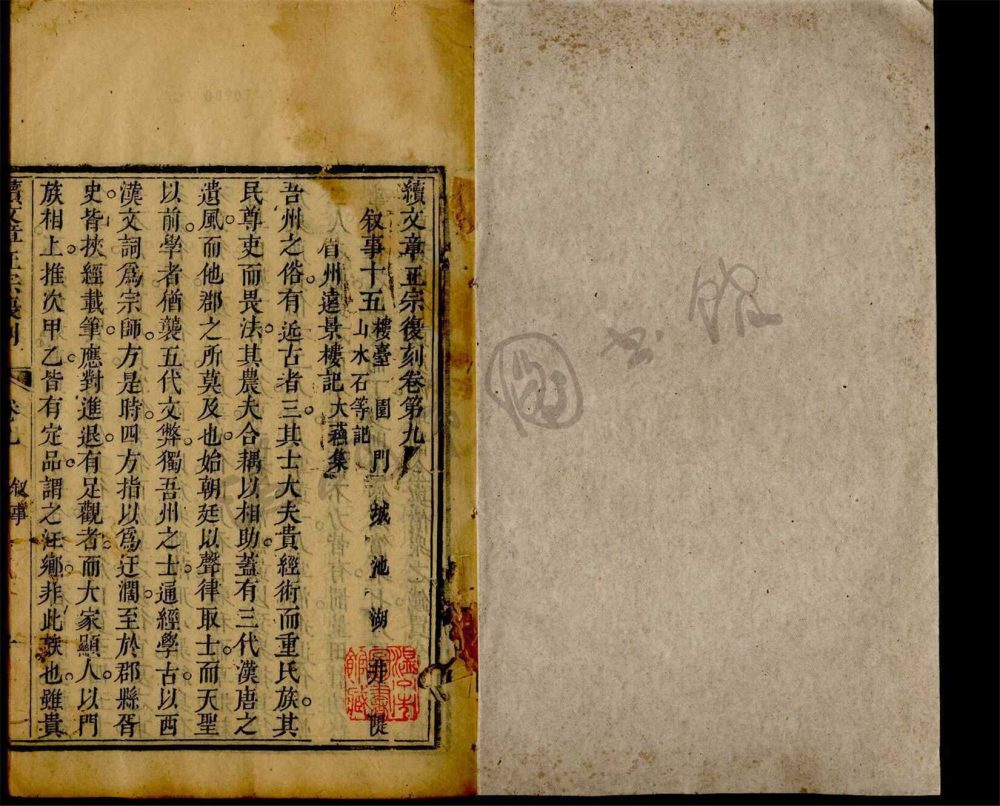 續文章正宗復刻卷第九
叙事十五 樓臺 園 門 城 池 湖 井 隄
山水石等記
眉州遠景樓記 大蘓集
吾州之俗有近古者三其士大夫貴經術而重氏族其
民尊吏而畏法其農夫合耦以相助蓋有三代漢唐之
遺風而他郡之所莫及也始朝廷以聲律取士而天聖
以前學者猶襲五代文弊獨吾州之士通經學古以西
漢文詞爲宗師方是時四方指以爲迂濶至於郡縣胥
史皆挾經載筆應對進退有足觀者而大家顯人以門
族相上推次甲乙皆有定品謂之江鄉非此族也雖貴
續文章正宗復刻 卷九 叙事